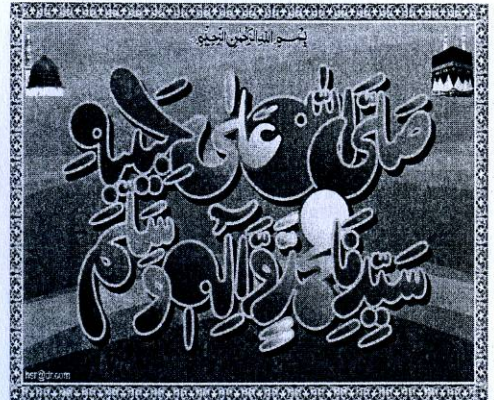 بِسْمِ اللهِ الرَّحْمٰنِ الرَّحِيْمِ
صَلَّى اللهُ عَلٰى حَبِيْبِهٖ
سَيِّدِنَا مُحَمَّدٍ وَّاٰلِهٖ وَسَلِّمْ